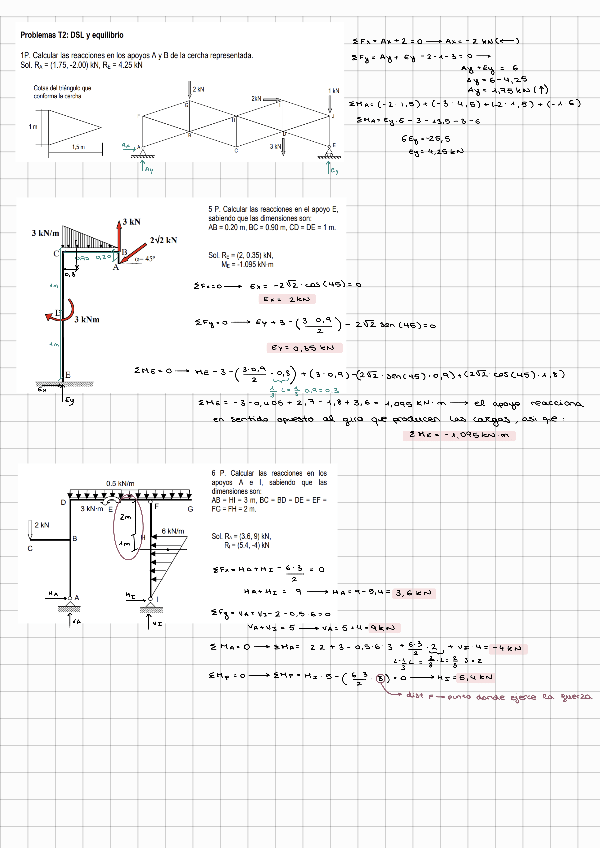 Problemas T2: DSL y equilibrio
1P. Calcular las reacciones en los apoyos A y B de la cercha representada.
Sol. RA = (1.75, -2.00) kN, RE = 4.25 kN
Cotas del triángulo que
conforma la cercha
1 m
1,5 m
2 kN
2kN
1 kN
3 kN
A
E
Ay
Ey
ΣFx = Ax + 2 = 0 → Ax = -2 kN (←)
ΣFy = Ay + Ey - 2 - 1 - 3 = 0 →
Ay + Ey = 6
Ay = 6 - 4,25
Ay = 1,75 kN (↑)
ΣMA = (-2 · 1,5) + (-3 · 4,5) + (-2 · 1,5) + (-1 · 6)
ΣMA = Ey · 6 - 3 - 13,5 - 3 - 6
6Ey = 25,5
Ey = 4,25 kN
5 P. Calcular las reacciones en el apoyo E,
sabiendo que las dimensiones son:
AB = 0.20 m, BC = 0.90 m, CD = DE = 1 m.
Sol. RE = (2, 0.35) kN,
ME = -1.095 kN m
3 kN/m
3 kN
2√2 kN
C
B
A
α= 45°
0,20
0,3
D
3 kNm
E
Ex
Ey
ΣFx = 0 → Ex = -2√2 · cos (45) = 0
Ex = 2kN
ΣFy = 0 → Ey + 3 - (3·0,9/2) - 2√2 sen (45) = 0
Ey = 0,35 kN
ΣME = 0 → ME - 3 - (3·0,9/2 · 0,3) + (3 · 0,9) - (2√2 · sen (45) · 0,9) + (2√2 cos (45) · 1,8)
1/3 L = 1/3 0,9 = 0,3
ΣME = -3 - 0,405 + 2,7 - 1,8 + 3,6 = 1,095 kN · m → el apoyo reacciona
en sentido opuesto al giro que producen las cargas, asi que:
ΣME = -1,095 kN·m
6 P. Calcular las reacciones en los
apoyos A e I, sabiendo que las
dimensiones son:
AB = HI = 3 m, BC = BD = DE = EF =
FG = FH = 2 m.
Sol. RA = (3.6, 9) kN,
RI = (5.4, -4) kN
0.5 kN/m
D
3 kN·m
E
F
G
2m
1m
2 kN
C
B
H
6 kN/m
HA
A
VA
HI
I
VI
ΣFx = HA + HI - 6·3/2 = 0
HA + HI = 9 → HA = 9 - 5,4 = 3,6 kN
ΣFy = VA + VI - 2 - 0,5 · 6 = 0
VA + VI = 5 → VA = 5 + 4 = 9 kN
ΣMA = 0 → ΣMA = 2·2 + 3 - 0,5·6·3 + 6·3/2 · 2 + VI · 4 = -4 kN
ΣMF = 0 → ΣMF = HI · 5 - (6·3/2 · 3) = 0 → HI = 5,4 kN
dist F — punto donde ejerce la fuerza